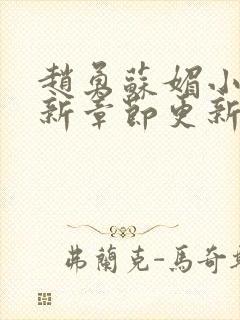 趙勇蘇媚小
新章節更新
弗蘭克-馬奇